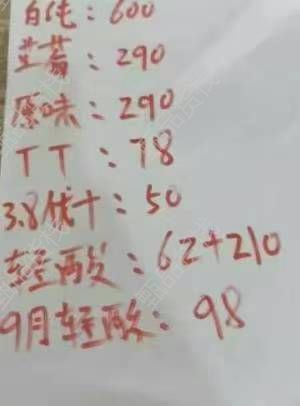 白纯：600
芝莓：290
原味：290
TT：78
3.8优+：50
轻酸：62+210
9月轻酸：98